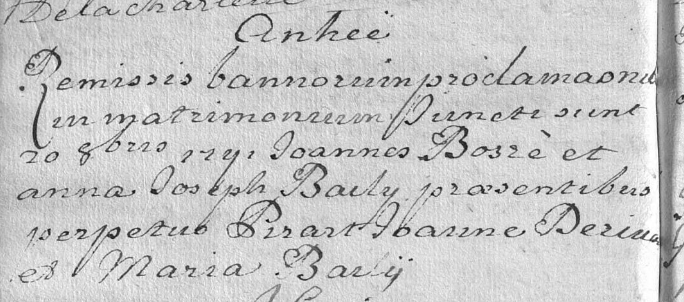 Delacharlerie
Anheë
Remissis bannorum proclamaonib
in matrimonium Juncti sunt
20 8bris 1791 Joannes Bossè et
anna Joseph Baily præsentibus
perpetuo Pirart Joanne
et Maria Bailÿ